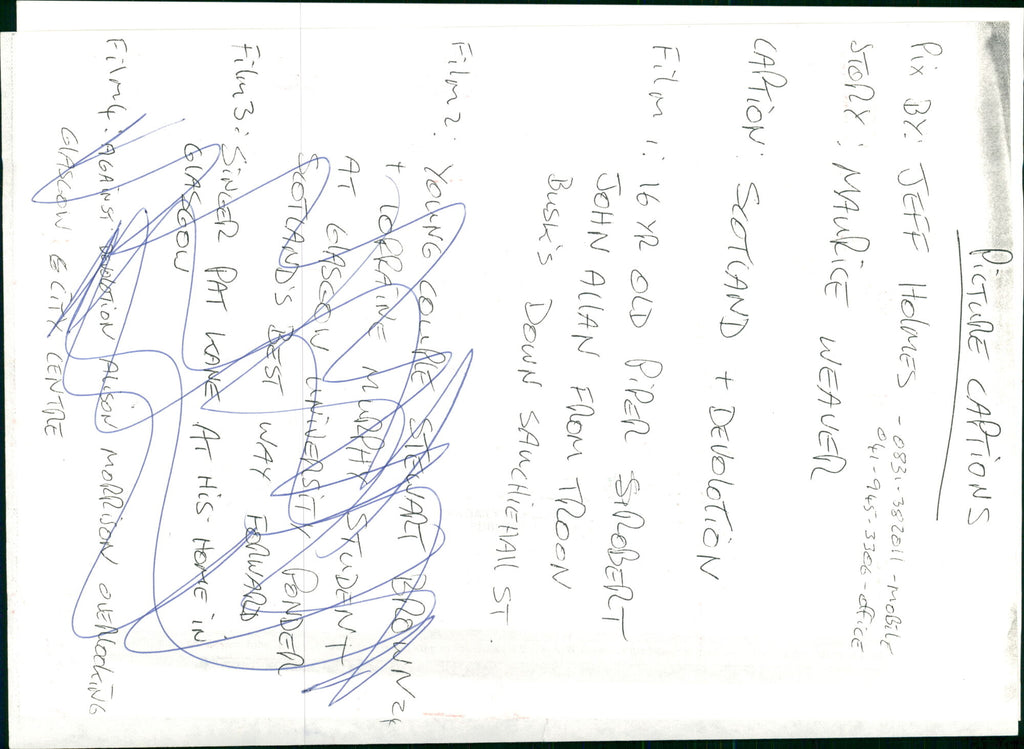 PICTURE CAPTIONS
Pix BY: JEFF HOLMES - 0831-382011 - mobile
041-945-3306 - office
STORY: MAURICE WEAVER
CAPTION: SCOTLAND + DEVOLOTION
Film 1: 16 YR OLD PIPER STROBERT
JOHN ALLAN FROM TROON
BUSK'S DOWN SAUCHIEHALL ST
Film 2: YOUNG COUPLE STEWART BROWN 24
+ LORRAINE MURPHY STUDENT
AT GLASGOW UNIVERSITY PONDER
SCOTLAND'S BEST WAY FORWARD
Film 3: SINGER PAT KANE AT HIS HOME IN
GLASGOW
Film 4: AGAINST DEVOLOTION ALISON MORRISON OVERLOOKING
GLASGOW: CITY CENTRE